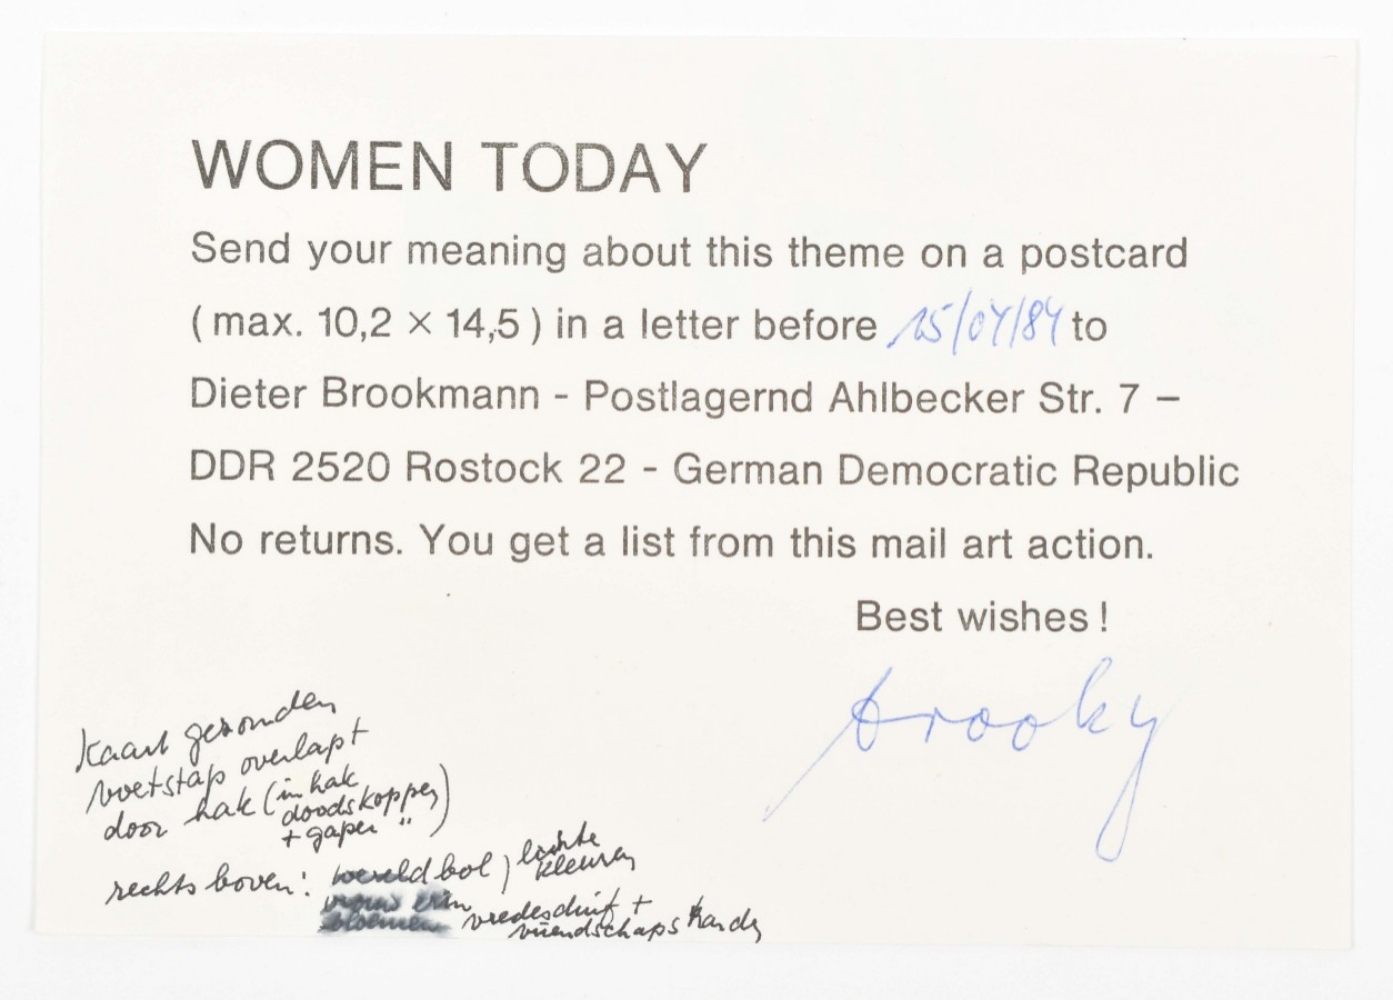 WOMEN TODAY
Send your meaning about this theme on a postcard
( max. 10,2 × 14,5 ) in a letter before 15/04/84 to
Dieter Brookmann - Postlagernd Ahlbecker Str. 7 –
DDR 2520 Rostock 22 - German Democratic Republic
No returns. You get a list from this mail art action.
Best wishes !
brooky
Kaart gezonden
voetstap overlapt
door hak (in hak
doodskoppen)
+ gaper "
rechts boven: wereldbol, lichte
kleuren
vrouw
bloemen vredesduif +
vriendschaps